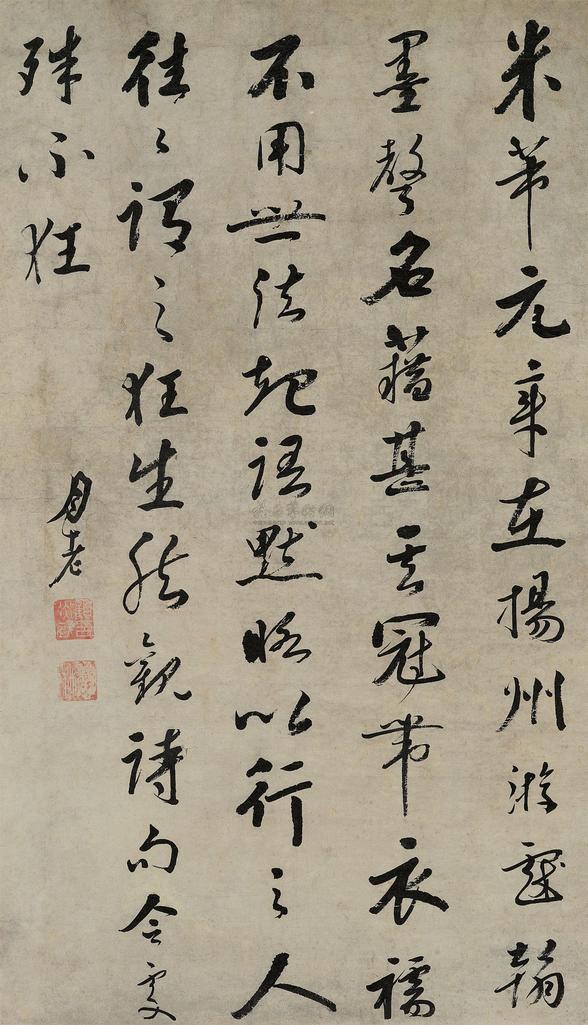 米芾元章在揚州游戲翰
墨聲名藉甚其冠帶衣襦
不用世法起語默略以行之人
往〻謂之狂生然觀詩句合處
殊不狂
老